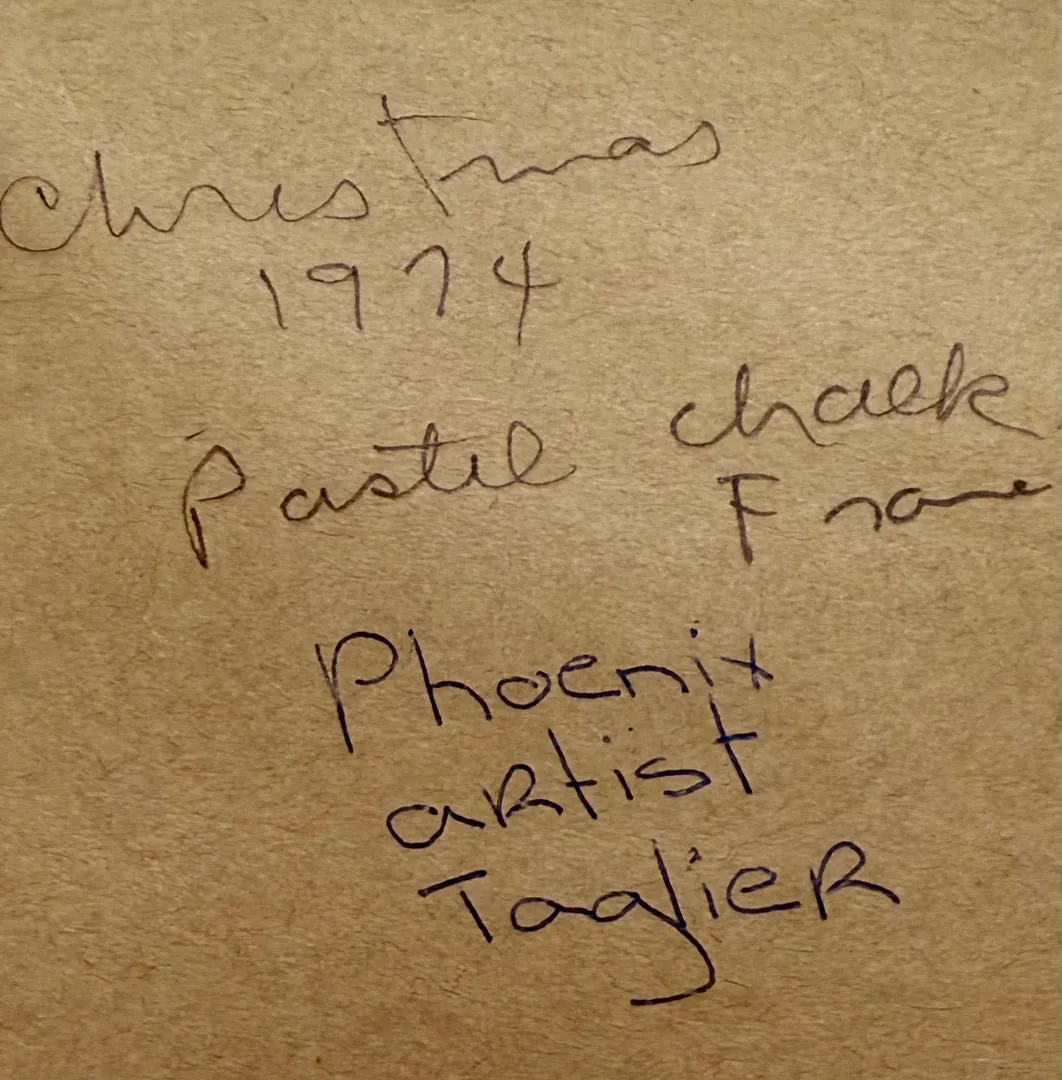 Christmas
1974
Pastel chalk
Frame
Phoenix
artist
Taglier